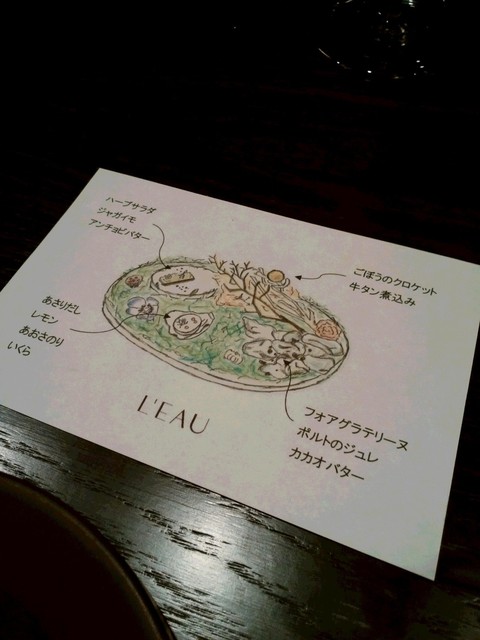 ハーブサラダ
ジャガイモ
アンチョビバター
ごぼうのクロケット
牛タン煮込み
あさりだし
レモン
あおさのり
いくら
フォアグラテリーヌ
ポルトのジュレ
カカオバター
L'EAU